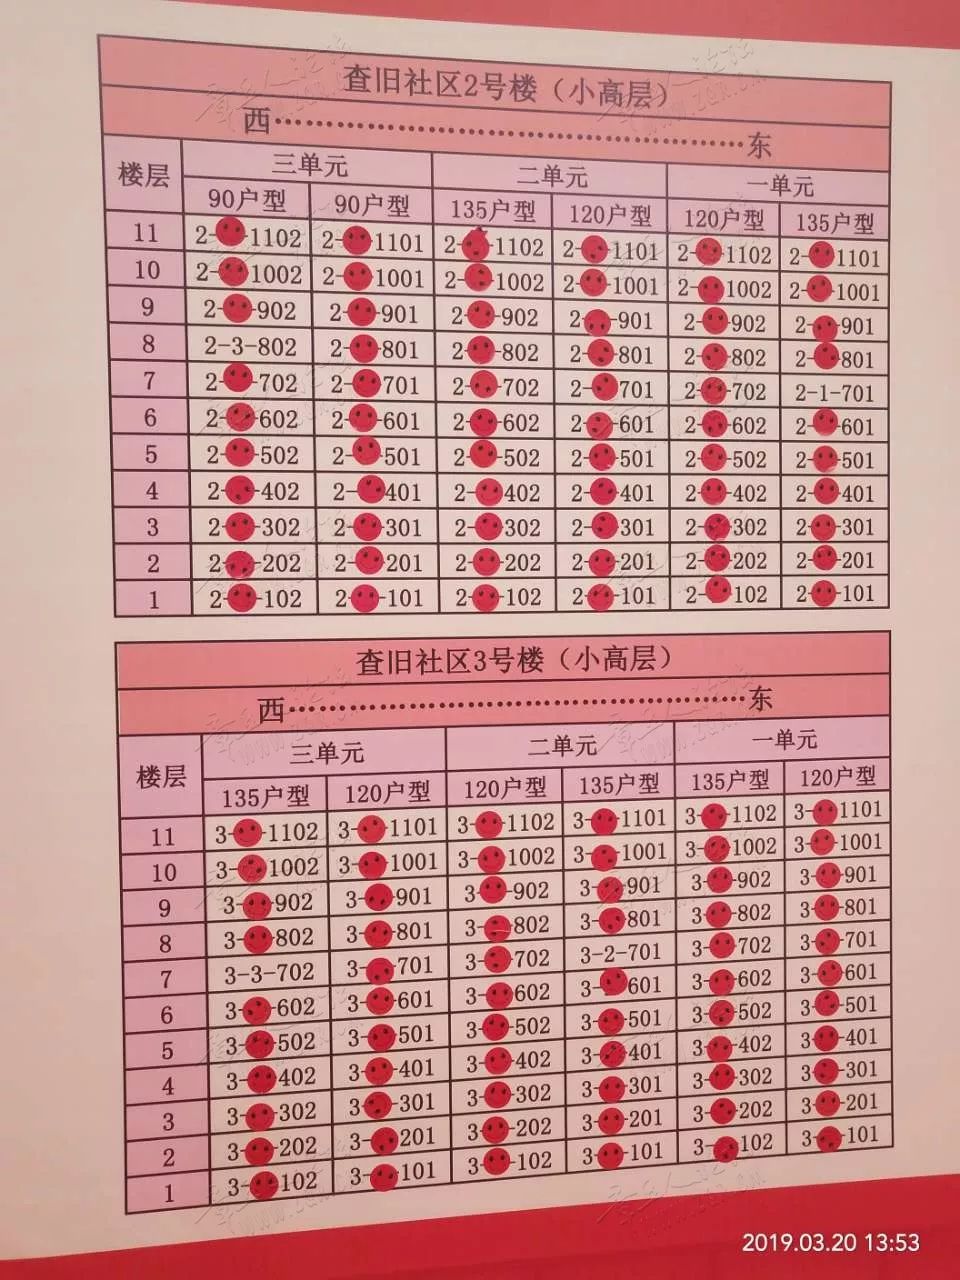 查旧社区2号楼（小高层）
西……………………………………东
楼层 三单元 二单元 一单元
90户型 90户型 135户型 120户型 120户型 135户型
11 2- -1102 2- -1101 2- -1102 2- -1101 2- -1102 2- -1101
10 2- -1002 2- -1001 2- -1002 2- -1001 2- -1002 2- -1001
9 2- -902 2- -901 2- -902 2- -901 2- -902 2- -901
8 2-3-802 2- -801 2- -802 2- -801 2- -802 2- -801
7 2- -702 2- -701 2- -702 2- -701 2- -702 2-1-701
6 2- -602 2- -601 2- -602 2- -601 2- -602 2- -601
5 2- -502 2- -501 2- -502 2- -501 2- -502 2- -501
4 2- -402 2- -401 2- -402 2- -401 2- -402 2- -401
3 2- -302 2- -301 2- -302 2- -301 2- -302 2- -301
2 2- -202 2- -201 2- -202 2- -201 2- -202 2- -201
1 2- -102 2- -101 2- -102 2- -101 2- -102 2- -101
查旧社区3号楼（小高层）
西……………………………………东
楼层 三单元 二单元 一单元
135户型 120户型 120户型 135户型 135户型 120户型
11 3- -1102 3- -1101 3- -1102 3- -1101 3- -1102 3- -1101
10 3- -1002 3- -1001 3- -1002 3- -1001 3- -1002 3- -1001
9 3- -902 3- -901 3- -902 3- -901 3- -902 3- -901
8 3- -802 3- -801 3- -802 3- -801 3- -802 3- -801
7 3-3-702 3- -701 3- -702 3-2-701 3- -702 3- -701
6 3- -602 3- -601 3- -602 3- -601 3- -602 3- -601
5 3- -502 3- -501 3- -502 3- -501 3- -502 3- -501
4 3- -402 3- -401 3- -402 3- -401 3- -402 3- -401
3 3- -302 3- -301 3- -302 3- -301 3- -302 3- -301
2 3- -202 3- -201 3- -202 3- -201 3- -202 3- -201
1 3- -102 3- -101 3- -102 3- -101 3- -102 3- -101
2019.03.20 13:53